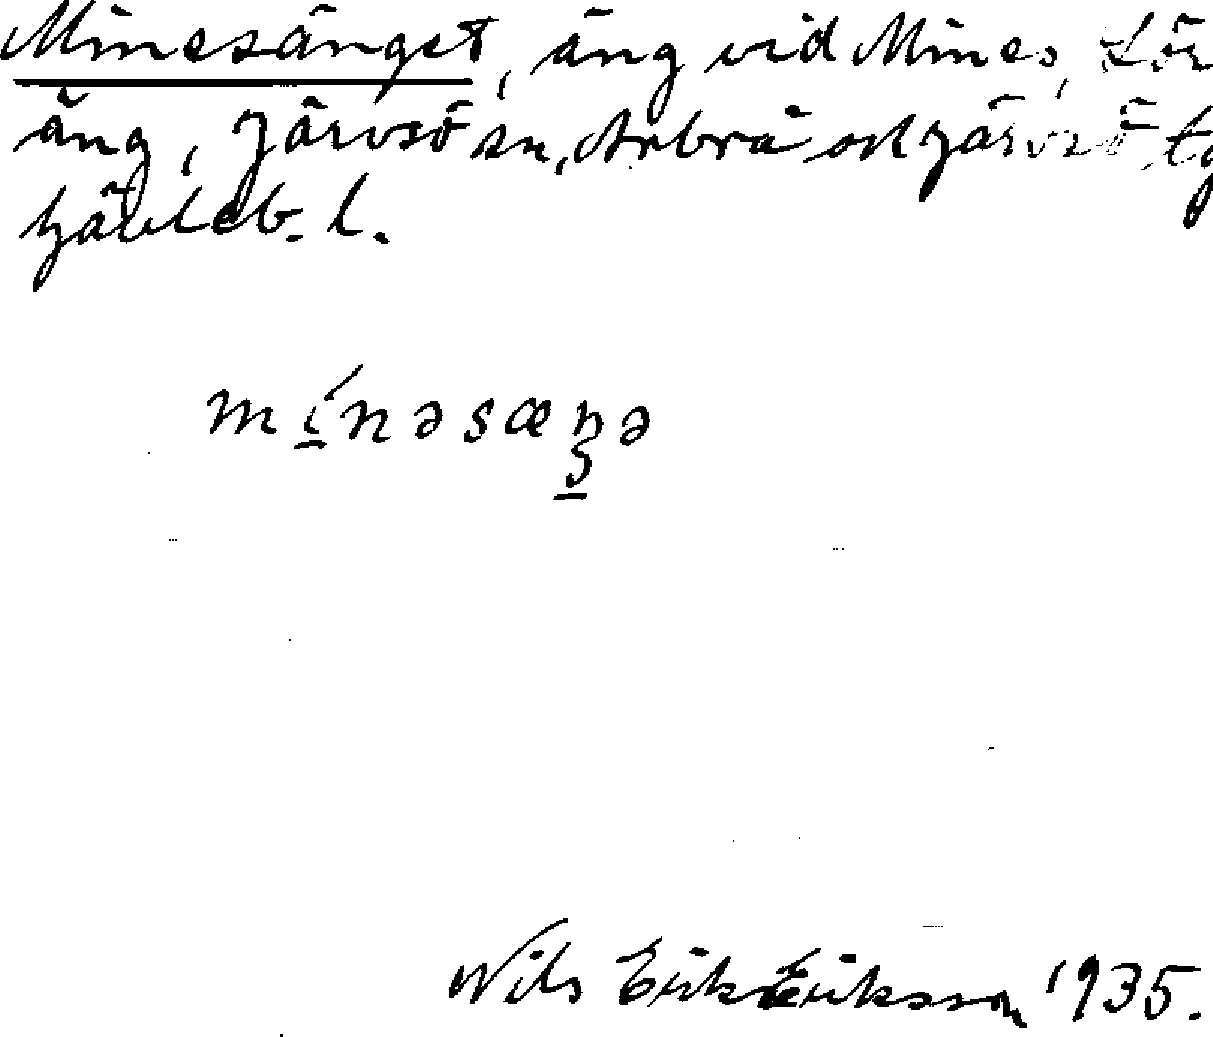 Minesänget, äng vid Mines, Lör
äng, Järvsö sn, Arbrå och Järvsö, tg
Gävleb. l.
mínəsæŋə
Nils Erik Eriksson 1935.